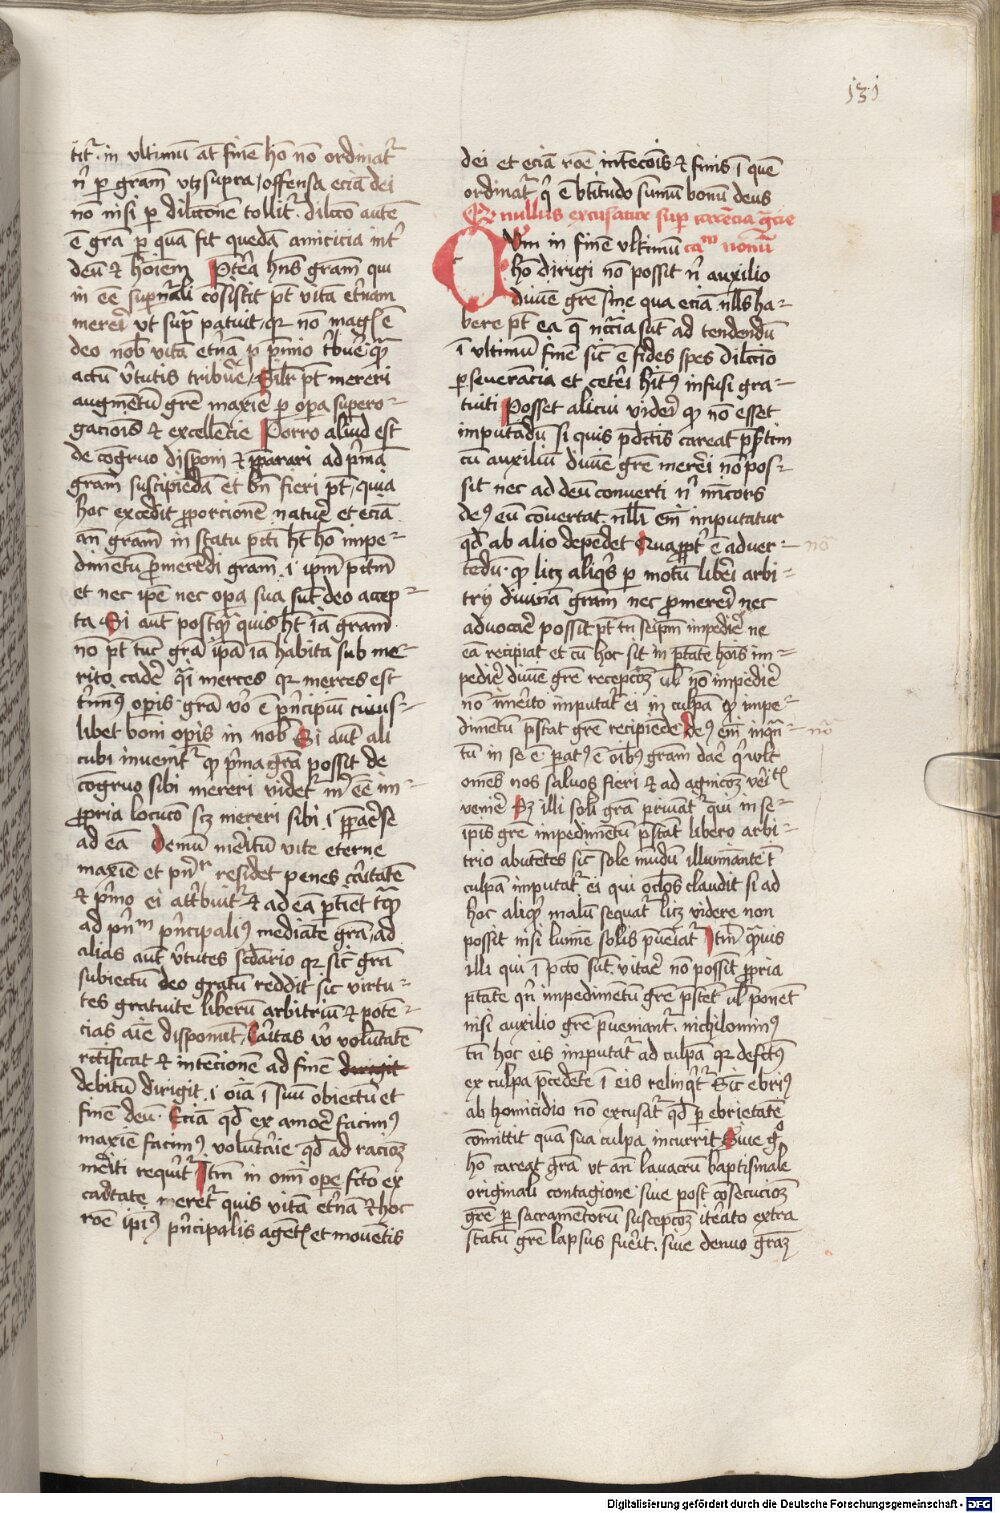 131
titr̄ in vltimū at̄ finē hō nō ordinat᷑
n̄ p gram̄ vt supra / offensa eciā dei
nō nisi p dilcōnē tollit᷑ dilcō autē
ē grā p quā fit quedā amicicia int᷑
deū ⁊ hōiem Pret͛ea hn̄s gram̄ qui
in eē sup̄nr̄ali cōsistit pt̄ vitā et͛nam
mereri vt supr̄ patuit qꝛ nō mag᷑ ē
deo nob̄ vitā et͛nā p p̄mio t͛buē qꝫ
actū v͛tutis tribuē / Silr̄ pt̄ mereri
augmētū grē maxīe p opa supero-
gaciōis ⁊ excellēcie Porro aliud est
de cōgruo disponi ⁊ p̄parari ad p̄mā
gram̄ suscipiēdā et bn̄ fieri pt̄ / quia
hoc excedit ꝓporcionē nature et eciā
an̄ gram̄ in statu p̄cti ht̄ hō impe-
dimētū ꝓmerēdi gram̄ .i. ip̄m p̄ctm̄
et nec ip̄e nec opa sua sut̄ deo accep-
ta Si aut̄ postqꝫ quis ht̄ iā gram̄
nō pt̄ tūc grā ip̄a iā habita sub me-
rito cadē q̄i merces qꝛ merces est
t͛mn᷒ opis grā v͛o ē p͛ncipiū cuius-
libet boni opis in nob̄ Si aut̄ ali
cubi inuenit᷑ qꝫ p͛ma grā possit de
cōgruo sibi mereri videt᷑ in eē im-
ꝓpria locucō scꝫ mereri sibi .i. p̄pare se
ad eā Demū meritū vite eterne
maxīe et pn᷑ residet penes caritatē
⁊ p͛mo ei att͛buit᷑ ⁊ ad eā p̄tiet tqꝫ
ad pn̄m p͛ncipali᷒ mediāte grā / ad
alias aut̄ v͛tutes scd̄ario qꝛ sic grā
subiectū deo gratū reddit sic virtu-
tes gratuite liberū arbitriū ⁊ potē-
cias aīe disponūt Caritas v͛o volūtatē
rctificat ⁊ intēcionē ad finē dirigit
debitū dirigit .i. oīa ī suū obiectū et
finē deū Eciā qd̄ ex amore facim᷒
maxīe facim᷒ volūtarie qd̄ ad racōꝫ
meriti requirit᷑ Itm̄ in om̄i ope fcō ex
caritate meret᷑ quis vitā et͛nā ⁊ hoc
rōe ip̄i᷒ p͛ncipalis agēt᷑ et mouētis
dei et eciā rōē intēcōis ⁊ finis ī quē
ordinat᷑ q͛ ē btītudo sum̄ū bonū deus
Qꝙ nullus excusatur sup carēcia grē cam nonū
Qum in finē vltimū
hō dirigi nō possit n̄ auxilio
diuīe grē sine qua eciā nll̄s ha-
bere pt̄ ea q̄ nc̄cīa sūt ad tendendū
ī vltimū finē sic ē fides spes dilcīo
pseuerācia et ceteri hit᷒ infusi gra-
tuiti Posset alicui videri qꝫ nō esset
imputādū si quis p̄dictis careat p̄stim
cū auxiliū diuīe grē mereri nō pos-
sit nec ad deū conuerti n̄ m͛cors
de᷒ eū cōuertat nll̄i em̄ imputatur
qd̄ ab alio depēdet Quapp̄t ē aduer-
tēdū qꝫ licꝫ aliq͛s p motū liberi arbi-
trij diuinā gram̄ nec ꝓmereri nec
aduocare possit pt̄ tn̄ seip̄m impedire ne
eā recipiat et cū hoc sit in p̄tate hōis im-
pedire diuīe grē recepcōꝫ ul̄ nō impedire
nō im̄erito imputat᷑ ei in culpā qꝫ impe-
dimētū p̄stat grē recipiēde De᷒ em̄ inqn̄-
tū in se ē parat᷒ ē oīb᷒ gram̄ dare q͛ vlt̄
om̄es nos saluos fieri ⁊ ad agnicōꝫ veritᷓ
venire Sꝫ illi soli grā priuāt᷑ qui in se-
ip̄is grē impedimētū p̄stāt libero arbi-
trio abutētes sic sole mūdū illuminante ī
culpā imputat᷑ ei qui oclōs claudit si ad
hoc aliqꝫ malū sequat᷑ licꝫ videre non
possit nisi lumīe solis p̄ueiat᷑ Itm̄ qꝫuis
illi qui ī pctō sūt vitare nō possīt ꝓpria
p̄tate qn̄ impedimētū grē p̄stēt ul̄ ponēt
nisi auxilio grē p̄ueniant᷑ nichilomin᷒
tn̄ hoc eis imputat᷑ ad culpā qꝛ defect᷒
ex culpa p̄cedēte ī eis relinq͛t᷑ Sic ebri᷒
ab homicidio nō excusat᷑ qd̄ p ebrietatē
cōmittit quā sua culpa incurrit Siue gͦ
hō careat grā vt an̄ lauacrū baptismale
originali contagione siue post cōsecucōꝫ
grē p sacramētorū suscepcōꝫ iterato extra
statū grē lapsus fuerit siue denuo graꝫ
nō
nō
Digitalisierung gefördert durch die Deutsche Forschungsgemeinschaft - DFG